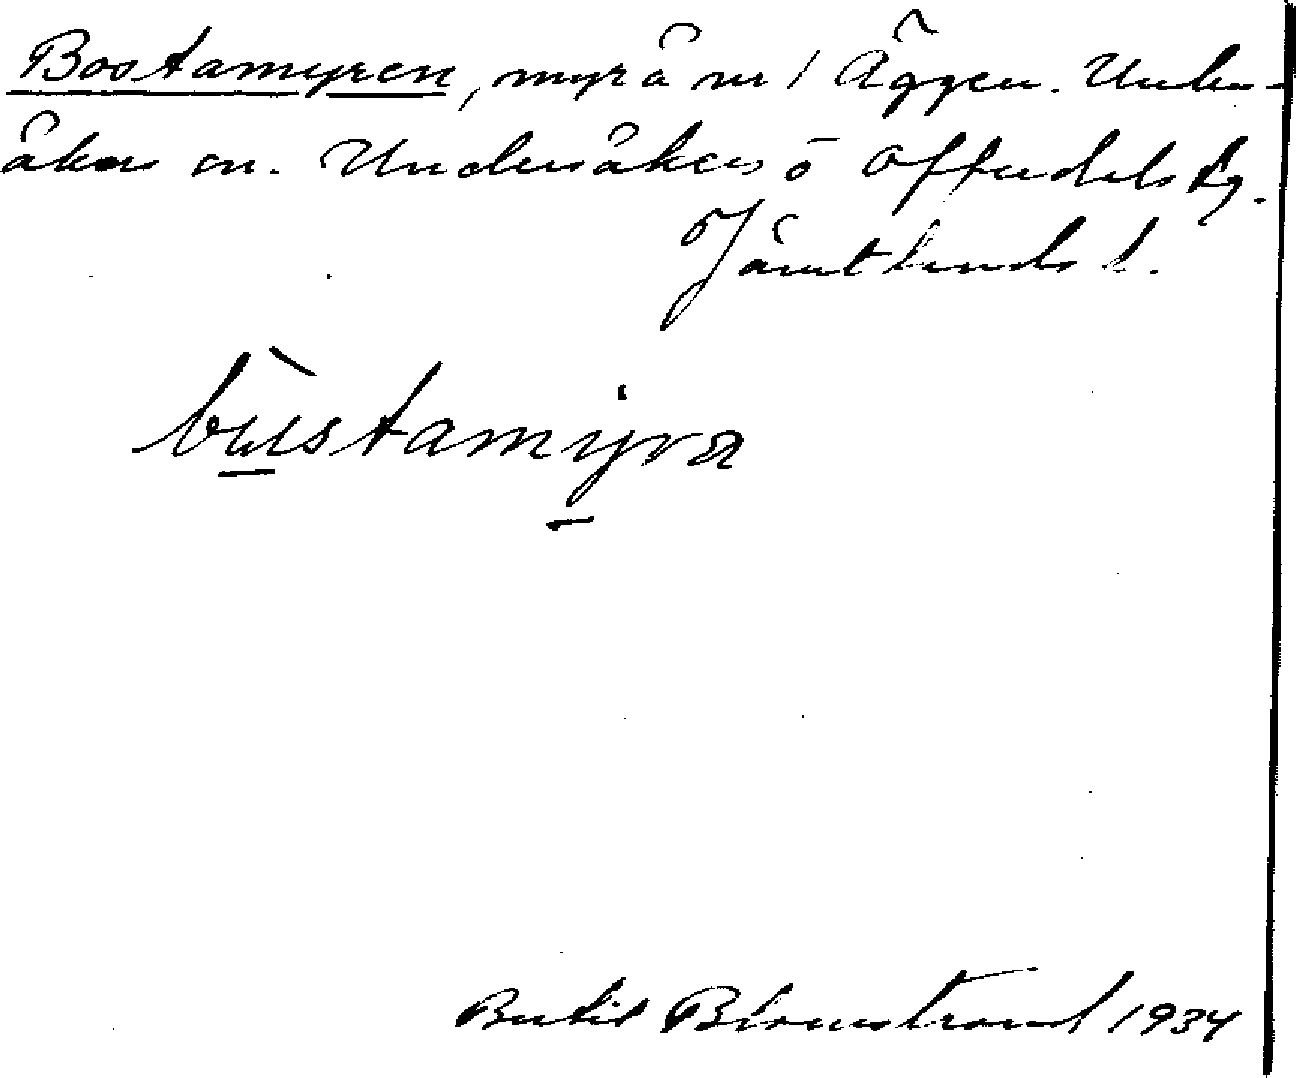 Bostamyren, myr å nr 1 Äggen. Under-
såkers sn. Undersåkers o Offerdals tg.
Jämtlands l.
bùstamyra
Bertil Blomstrand 1934